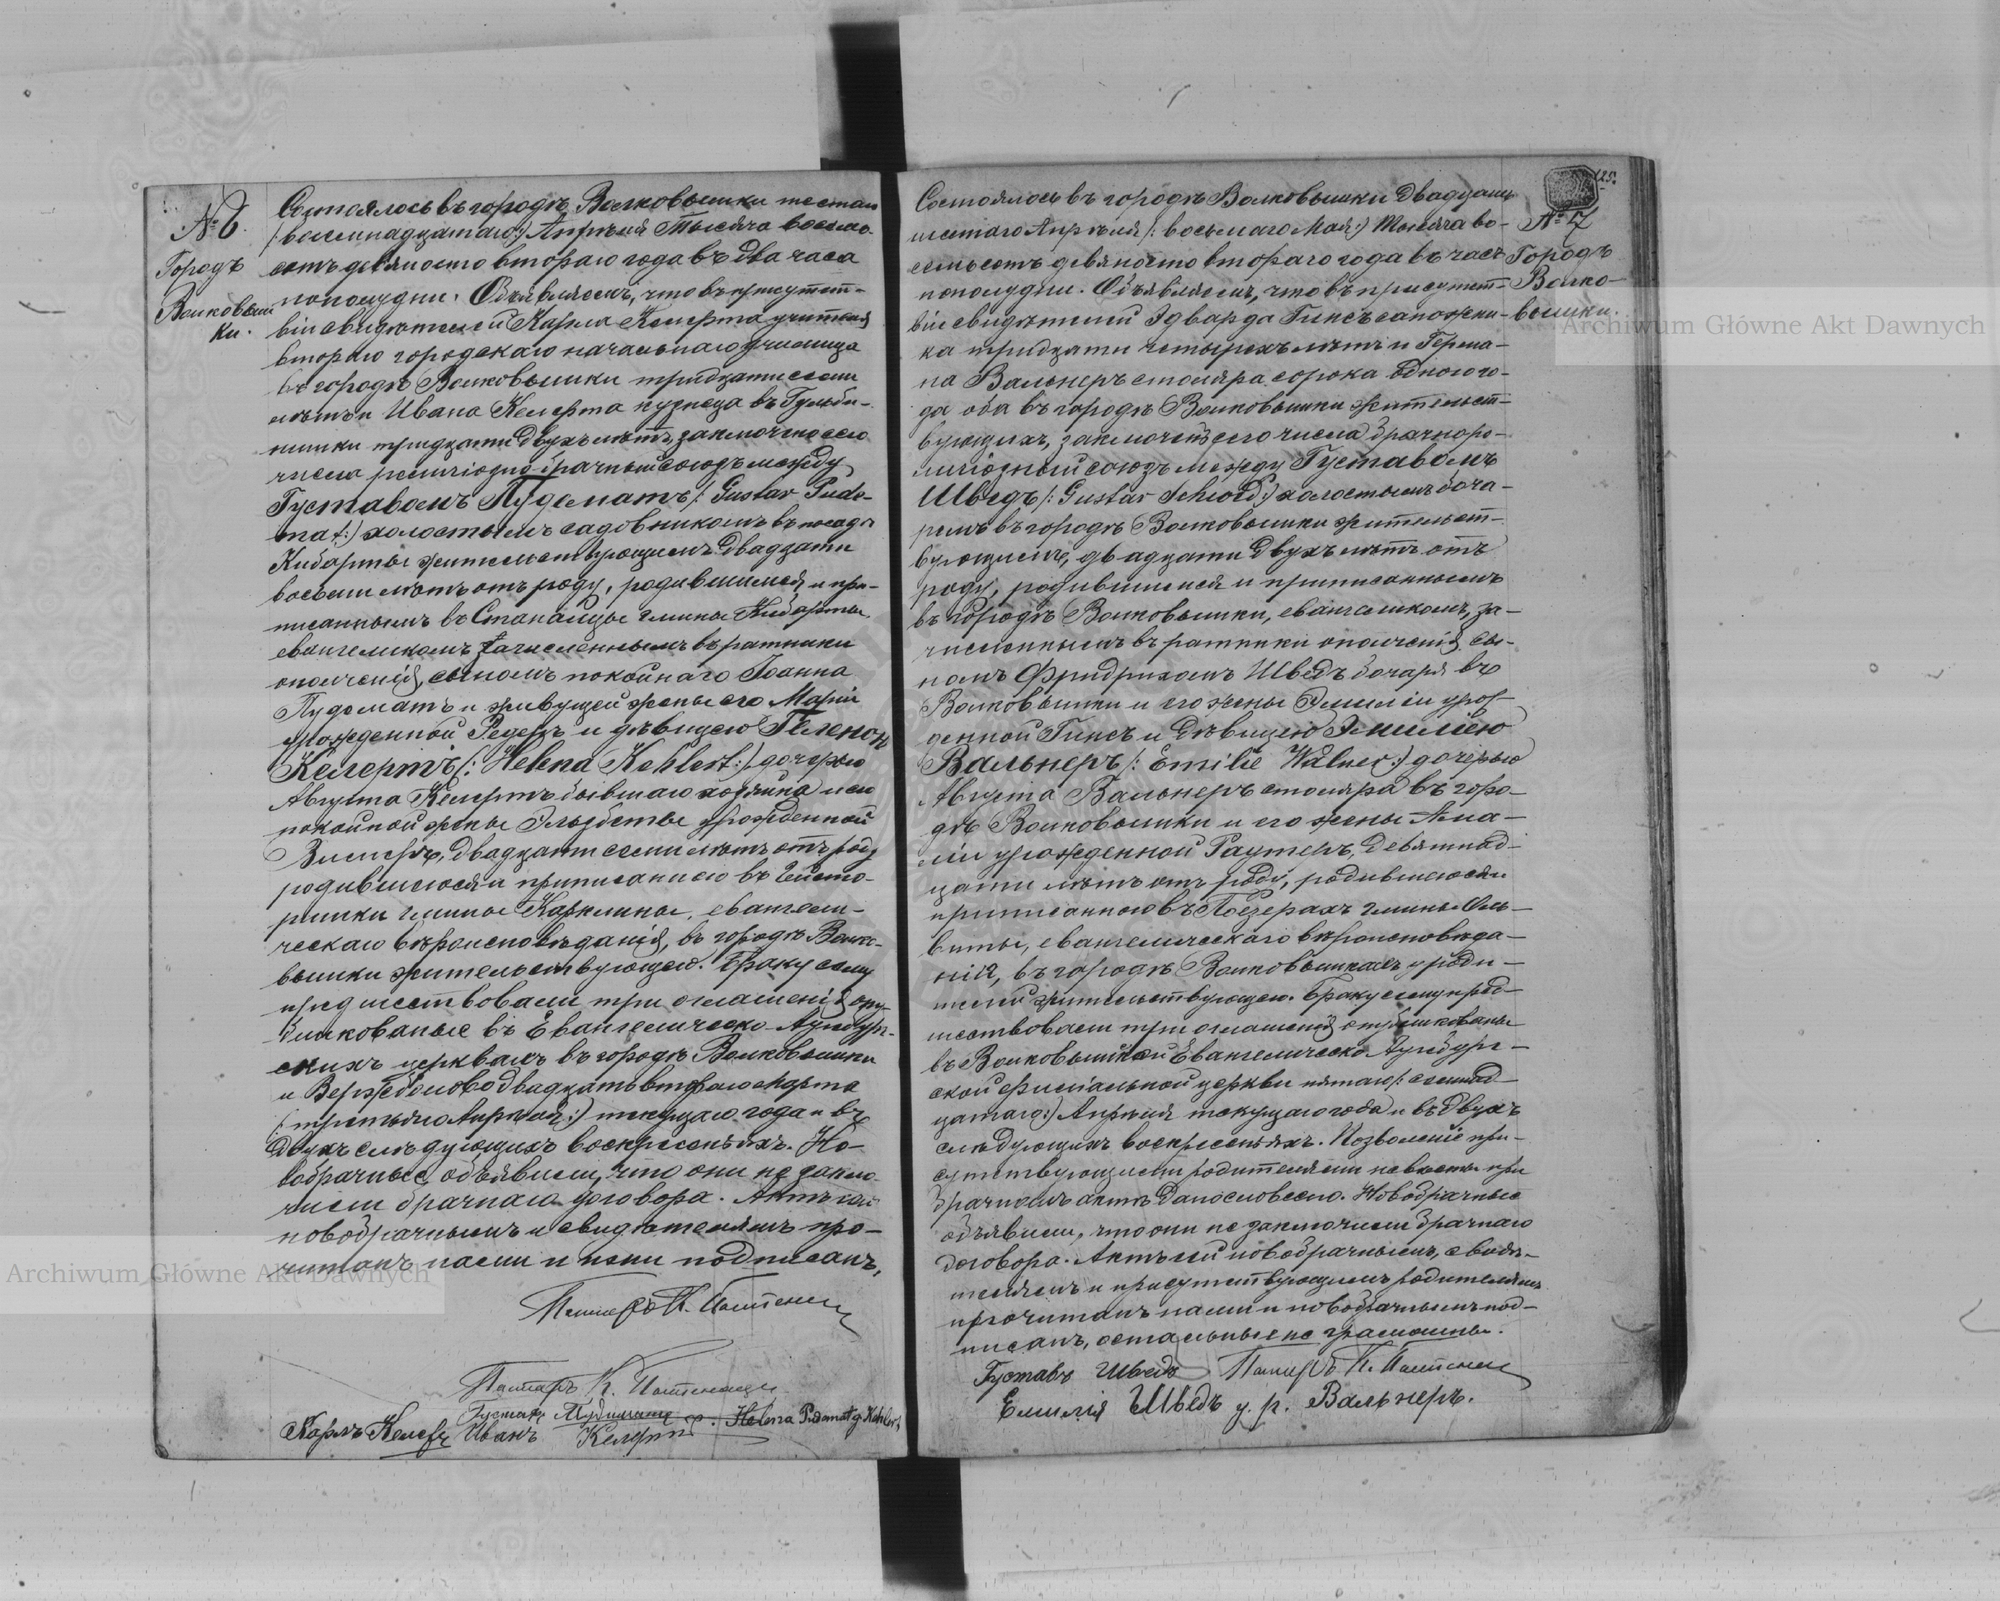 № 6.
Городъ
Волковыш
ки.
Состоялось въ городѣ Волковышки шестаго
/:восемнадцатаго:/ Апрѣля тысяча восемь-
сотъ девяносто втораго года въ два часа
пополудни. Объявляемъ, что въ присутст-
віи свидѣтелей Карла Келерта учителя
втораго городскаго начальнаго училища
въ городѣ Волковышки тридцати семи
лѣтъ и Ивана Келерта кузнеца въ Гульби-
нишки тридцати двухъ лѣтъ, заключенъ сего
числа религіозно-брачный союзъ между
Густавомъ Пудематъ /: Gustav Pude-
mat:/ холостымъ садовникомъ въ посадѣ
Кибарты жительствующимъ двадцати
восьми лѣтъ отъ роду, родившимся и при-
писаннымъ въ гмины Кибарты,
евангеликомъ зачисленнымъ въ ратники
ополченія, сыномъ покойнаго Іоанна
Пудематъ и живущей жены его Маріи
урожденной Редеръ и дѣвицею Геленою
Келертъ /: Helena Kehlert:/ дочерью
Августа Келертъ бывшаго хозяина и его
покойной жены Эльзбеты урожденной
двадцати семи лѣтъ отъ роду
родившеюся и приписанною въ
гмины Карклины, евангели-
ческаго вѣроисповѣданія, въ городѣ Волко-
вышки жительствующею. Браку сему
предшествовали три оглашенія опу-
бликованые въ Евангелическо-Аугсбург-
скихъ церквахъ въ городѣ Волковышки
и Вержболово двадцать втораго Марта
/:третьяго Апрѣля:/ текущаго года и въ
двухъ слѣдующихъ воскресеньяхъ. Но-
вобрачные объявили, что они не заклю-
чили брачнаго договора. Актъ сей
новобрачнымъ и свидѣтелямъ про-
читанъ нами и ними подписанъ.
Пасторъ К.
Пасторъ К.
Густавъ
Helena Pudemat g Kehlert
Карлъ Келертъ Иванъ Келертъ
125.
№ 7
Городъ
Волко-
вышки.
Состоялось въ городѣ Волковышки двадцать
шестаго Апрѣля /: восьмаго Мая:/ тысяча во-
семьсотъ девяносто втораго года въ часъ
пополудни. Объявляемъ, что въ присутст-
віи свидѣтелей Эдварда Гинсъ сапожни-
ка тридцати четырехъ лѣтъ и Герма-
на Вальнеръ столяра сорока одного го-
да оба въ городѣ Волковышки жительст-
вующихъ, заключенъ сего числа брачноре-
лигіозный союзъ между Густавомъ
Шведъ /: Gustav Schwed:/ холостымъ боча-
ремъ въ городѣ Волковышки жительст-
вующимъ, двадцати двухъ лѣтъ отъ
роду, родившимся и приписаннымъ
въ городѣ Волковышки, евангеликомъ, за-
численнымъ въ ратники ополченія, сы-
номъ Фридрихомъ Шведъ бочаря въ
Волковышки и его жены Эмиліи урож-
денной Гинсъ и дѣвицею Эмиліею
Вальнеръ /: Emilie Walner:/ дочерью
Августа Вальнеръ столяра въ горо-
дѣ Волковышки и его жены Ама-
ліи урожденной Раутеръ, девятнад-
цати лѣтъ отъ роду, родившеюся и
приписанною въ Поезерахъ гмины Оль-
виты, евангелическаго вѣроисповѣда-
нія, въ городѣ Волковышкахъ у роди-
телей жительствующею. Браку сему пред-
шествовали три оглашенія опубликованы
въ Волковышской Евангелическо Аугсбург-
ской филіальной церкви пятаго /: семнад-
цатаго:/ Апрѣля текущаго года и въ двухъ
слѣдующихъ воскресеньяхъ. Позволеніе при-
сутствующими родителями невѣсты при
брачномъ актѣ дано словесно. Новобрачные
объявили, что они не заключили брачнаго
договора. Актъ сей новобрачнымъ, свидѣ-
телямъ и присутствующимъ родителямъ
прочитанъ нами и новобрачнымъ под-
писанъ, остальные не грамотны.
Густавъ Шведъ Пасторъ К.
Емилія Шведъ у. р. Вальнеръ.
Archiwum Główne Akt Dawnych
Archiwum Główne Akt Dawnych